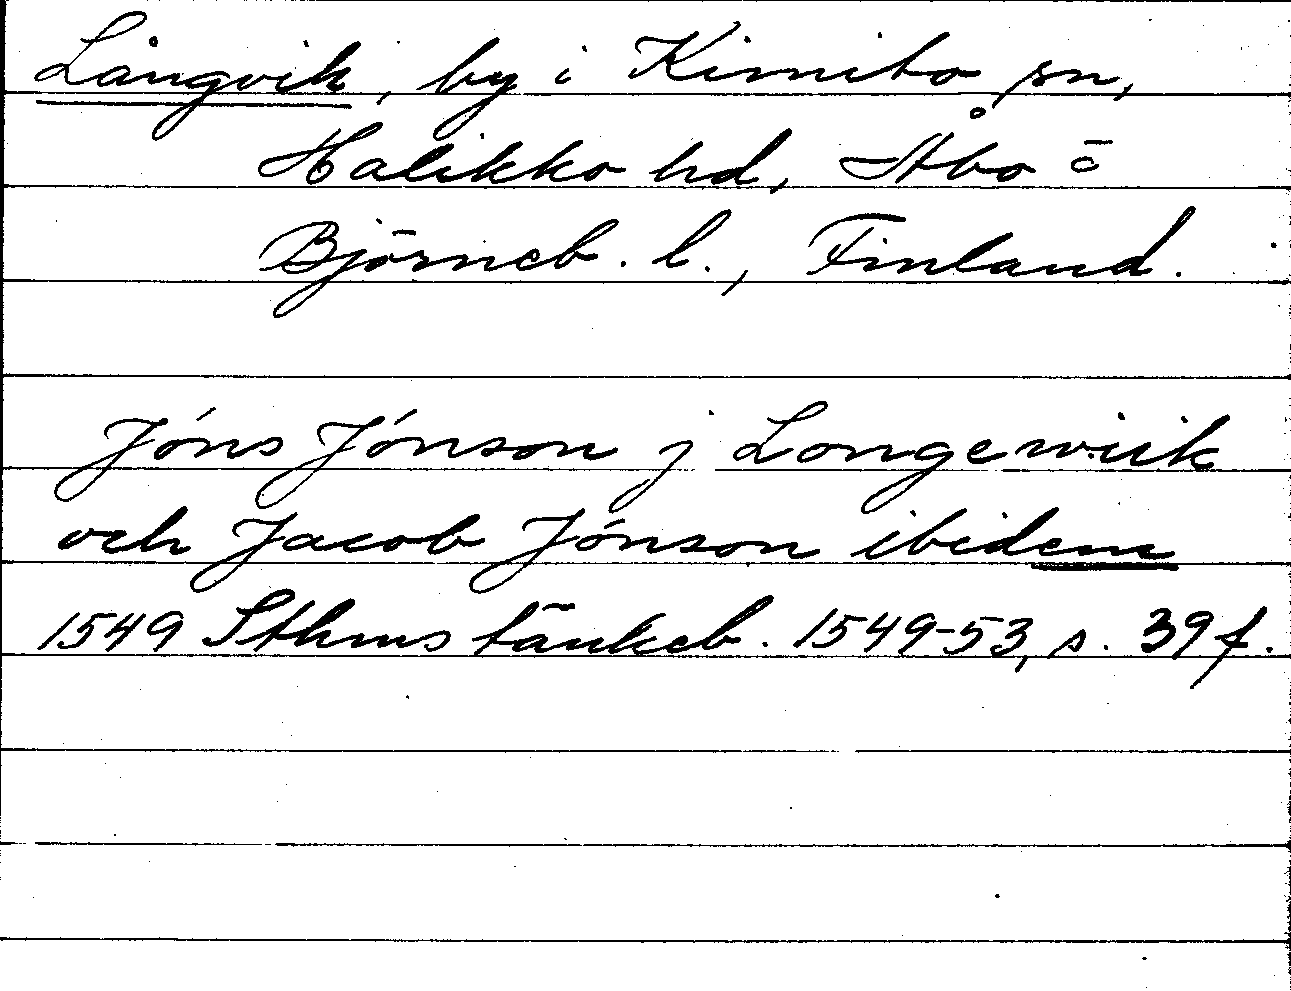 Långvik, by i Kimito sn,
Halikko hd, Åbo o
Björneb. l., Finland.
Jóns Jónson j Longewiik
och Jacob Jónson ibidem
1549 Sthms tänkeb. 1549-53, s. 39 f.